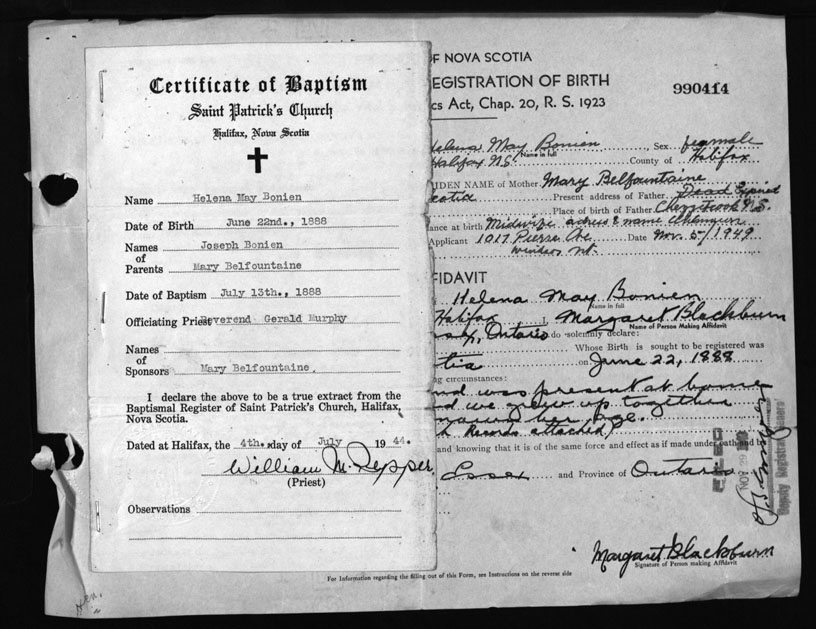 Certificate of Baptism
Saint Patrick's Church
Halifax, Nova Scotia
Name Helena May Bonien
Date of Birth June 22nd., 1888
Names Joseph Bonien
of
Parents Mary Belfountaine
Date of Baptism July 13th., 1888
Officiating Priest Reverend Gerald Murphy
Names
of
Sponsors Mary Belfountaine.
I declare the above to be a true extract from the
Baptismal Register of Saint Patrick's Church, Halifax,
Nova Scotia.
Dated at Halifax, the 4th. day of July 1944.
William M.
(Priest)
Observations
OF NOVA SCOTIA
EGISTRATION OF BIRTH
990414
cs Act, Chap. 20, R. S. 1923
Helena May Bonien, Sex female
Name in full
Halifax N.S. County of Halifax
IDEN NAME of Mother Mary Belfountaine
cotia Present address of Father Dead
Place of birth of Father N.S.
ance at birth Midwife adress & name
Applicant 1017 Pierre Ave Date Nov. 5/1949
FFIDAVIT
Helena May Bonien
Name in full
Halifax I, Margaret Blackburn
Name of Person Making Affidavit
Ontario do solemnly declare:
Whose Birth is sought to be registered was
tia on June 22, 1888
ng circumstances:
nd was present at home
d we grew up together
her age.
Records attached)
and knowing that it is of the same force and effect as if made under oath and by
Essex and Province of Ontario
FILED
NOV 29 19
Deputy Registrar General
Margaret Blackburn
Signature of Person making Affidavit
For Information regarding the filling out of this Form, see Instructions on the reverse side